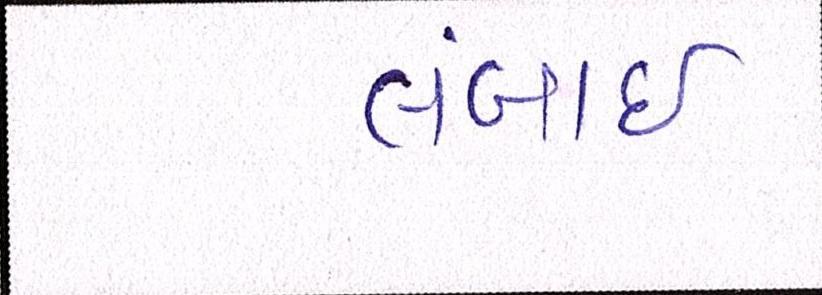 લંબાઈ